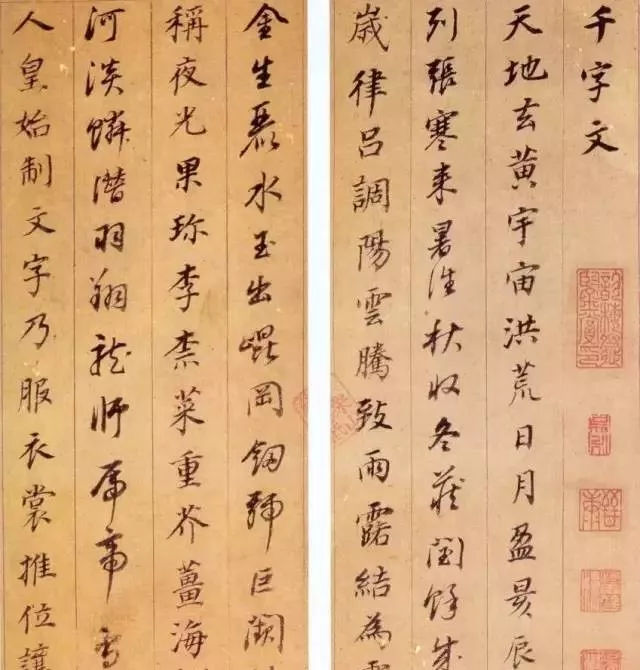 千字文
天地玄黃宇宙洪荒日月盈昃辰
列張寒来暑往秋收冬蔵閏餘成
歲律呂調陽雲騰致雨露結為
金生麗水玉出崐岡劔號巨闕
稱夜光果珍李柰菜重芥薑海
河淡鱗潛羽翔龍師帝鳥
人皇始制文字乃服衣裳推位讓